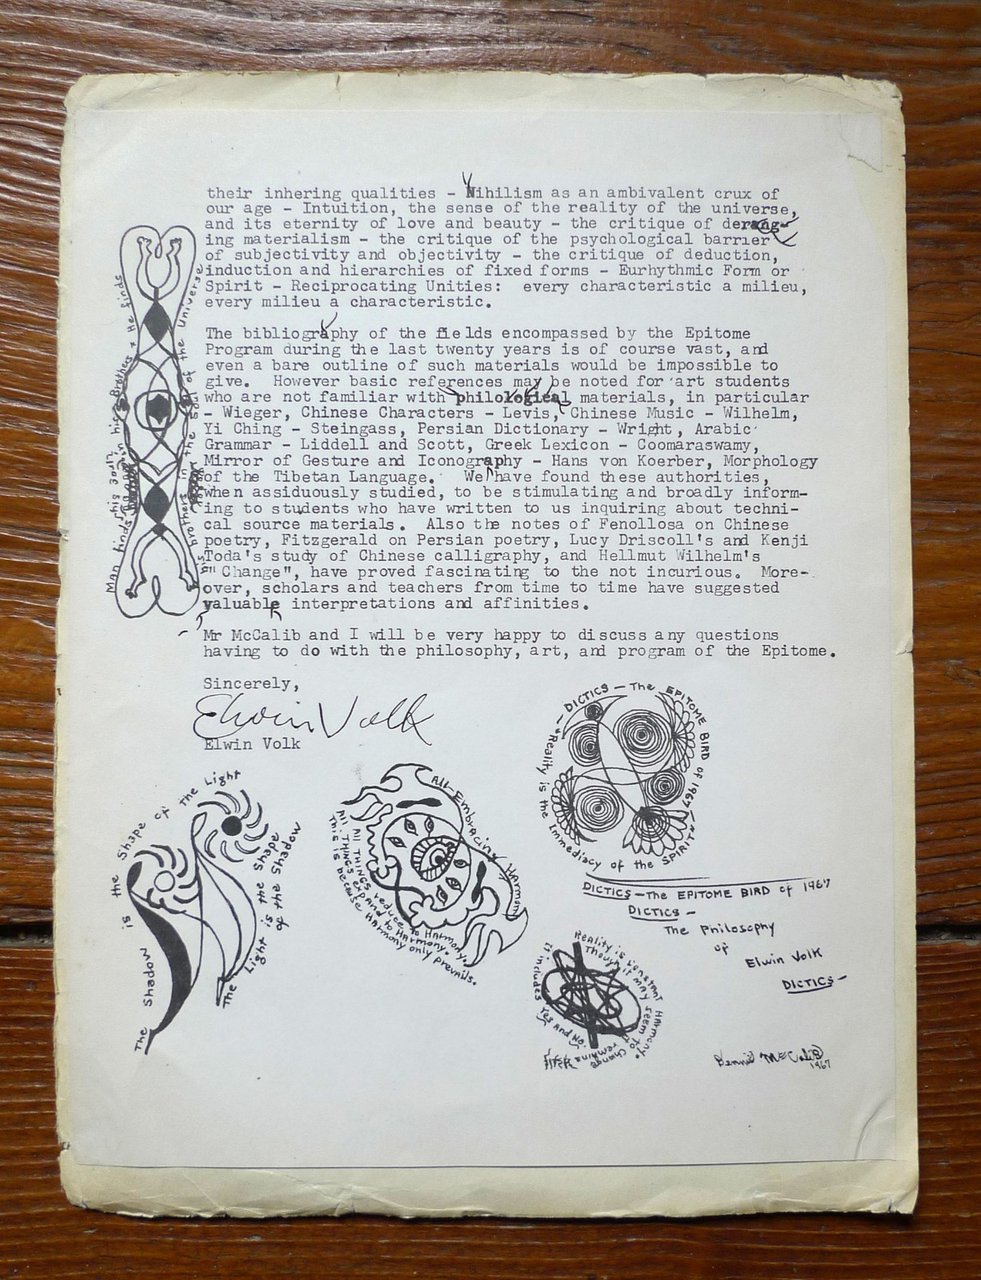 their inhering qualities - Nihilism as an ambivalent crux of
our age - Intuition, the sense of the reality of the universe,
and its eternity of love and beauty - the critique of derang-
ing materialism - the critique of the psychological barrier
of subjectivity and objectivity - the critique of deduction,
induction and hierarchies of fixed forms - Eurhythmic Form or
Spirit - Reciprocating Unities:  every characteristic a milieu,
every milieu a characteristic.
The bibliography of the fields encompassed by the Epitome
Program during the last twenty years is of course vast, and
even a bare outline of such materials would be impossible to
give.  However basic references may be noted for art students
who are not familiar with philological materials, in particular
- Wieger, Chinese Characters - Levis, Chinese Music - Wilhelm,
Yi Ching - Steingass, Persian Dictionary - Wright, Arabic
Grammar - Liddell and Scott, Greek Lexicon - Coomaraswamy,
Mirror of Gesture and Iconography - Hans von Koerber, Morphology
of the Tibetan Language.  We have found these authorities,
when assiduously studied, to be stimulating and broadly inform-
ing to students who have written to us inquiring about techni-
cal source materials.  Also the notes of Fenollosa on Chinese
poetry, Fitzgerald on Persian poetry, Lucy Driscoll's and Kenji
Toda's study of Chinese calligraphy, and Hellmut Wilhelm's
"Change", have proved fascinating to the not incurious.  More-
over, scholars and teachers from time to time have suggested
valuable interpretations and affinities.
Mr McCalib and I will be very happy to discuss any questions
having to do with the philosophy, art, and program of the Epitome.
Sincerely,
Elwin Volk
Elwin Volk
Man finds in his Brothers & He finds
his Brothers in the of the universe
The Shadow is the Shape of the Light
The Light is the Shape
of the Shadow
All-Embracing Harmony
All THINGS reduce to HARMONY.
All THINGS expand to HARMONY.
This is because HARMONY only prevails.
DICTICS - The EPITOME BIRD of 1967
"Reality is the Immediacy of the SPIRIT"
DICTICS - The EPITOME BIRD of 1967
DICTICS -
The Philosophy
of
Elwin Volk
DICTICS -
Reality is Constant HARMONY.
Though it may seem to Change
it includes Yes AND NO.
remains
Dennis McCalib
1967